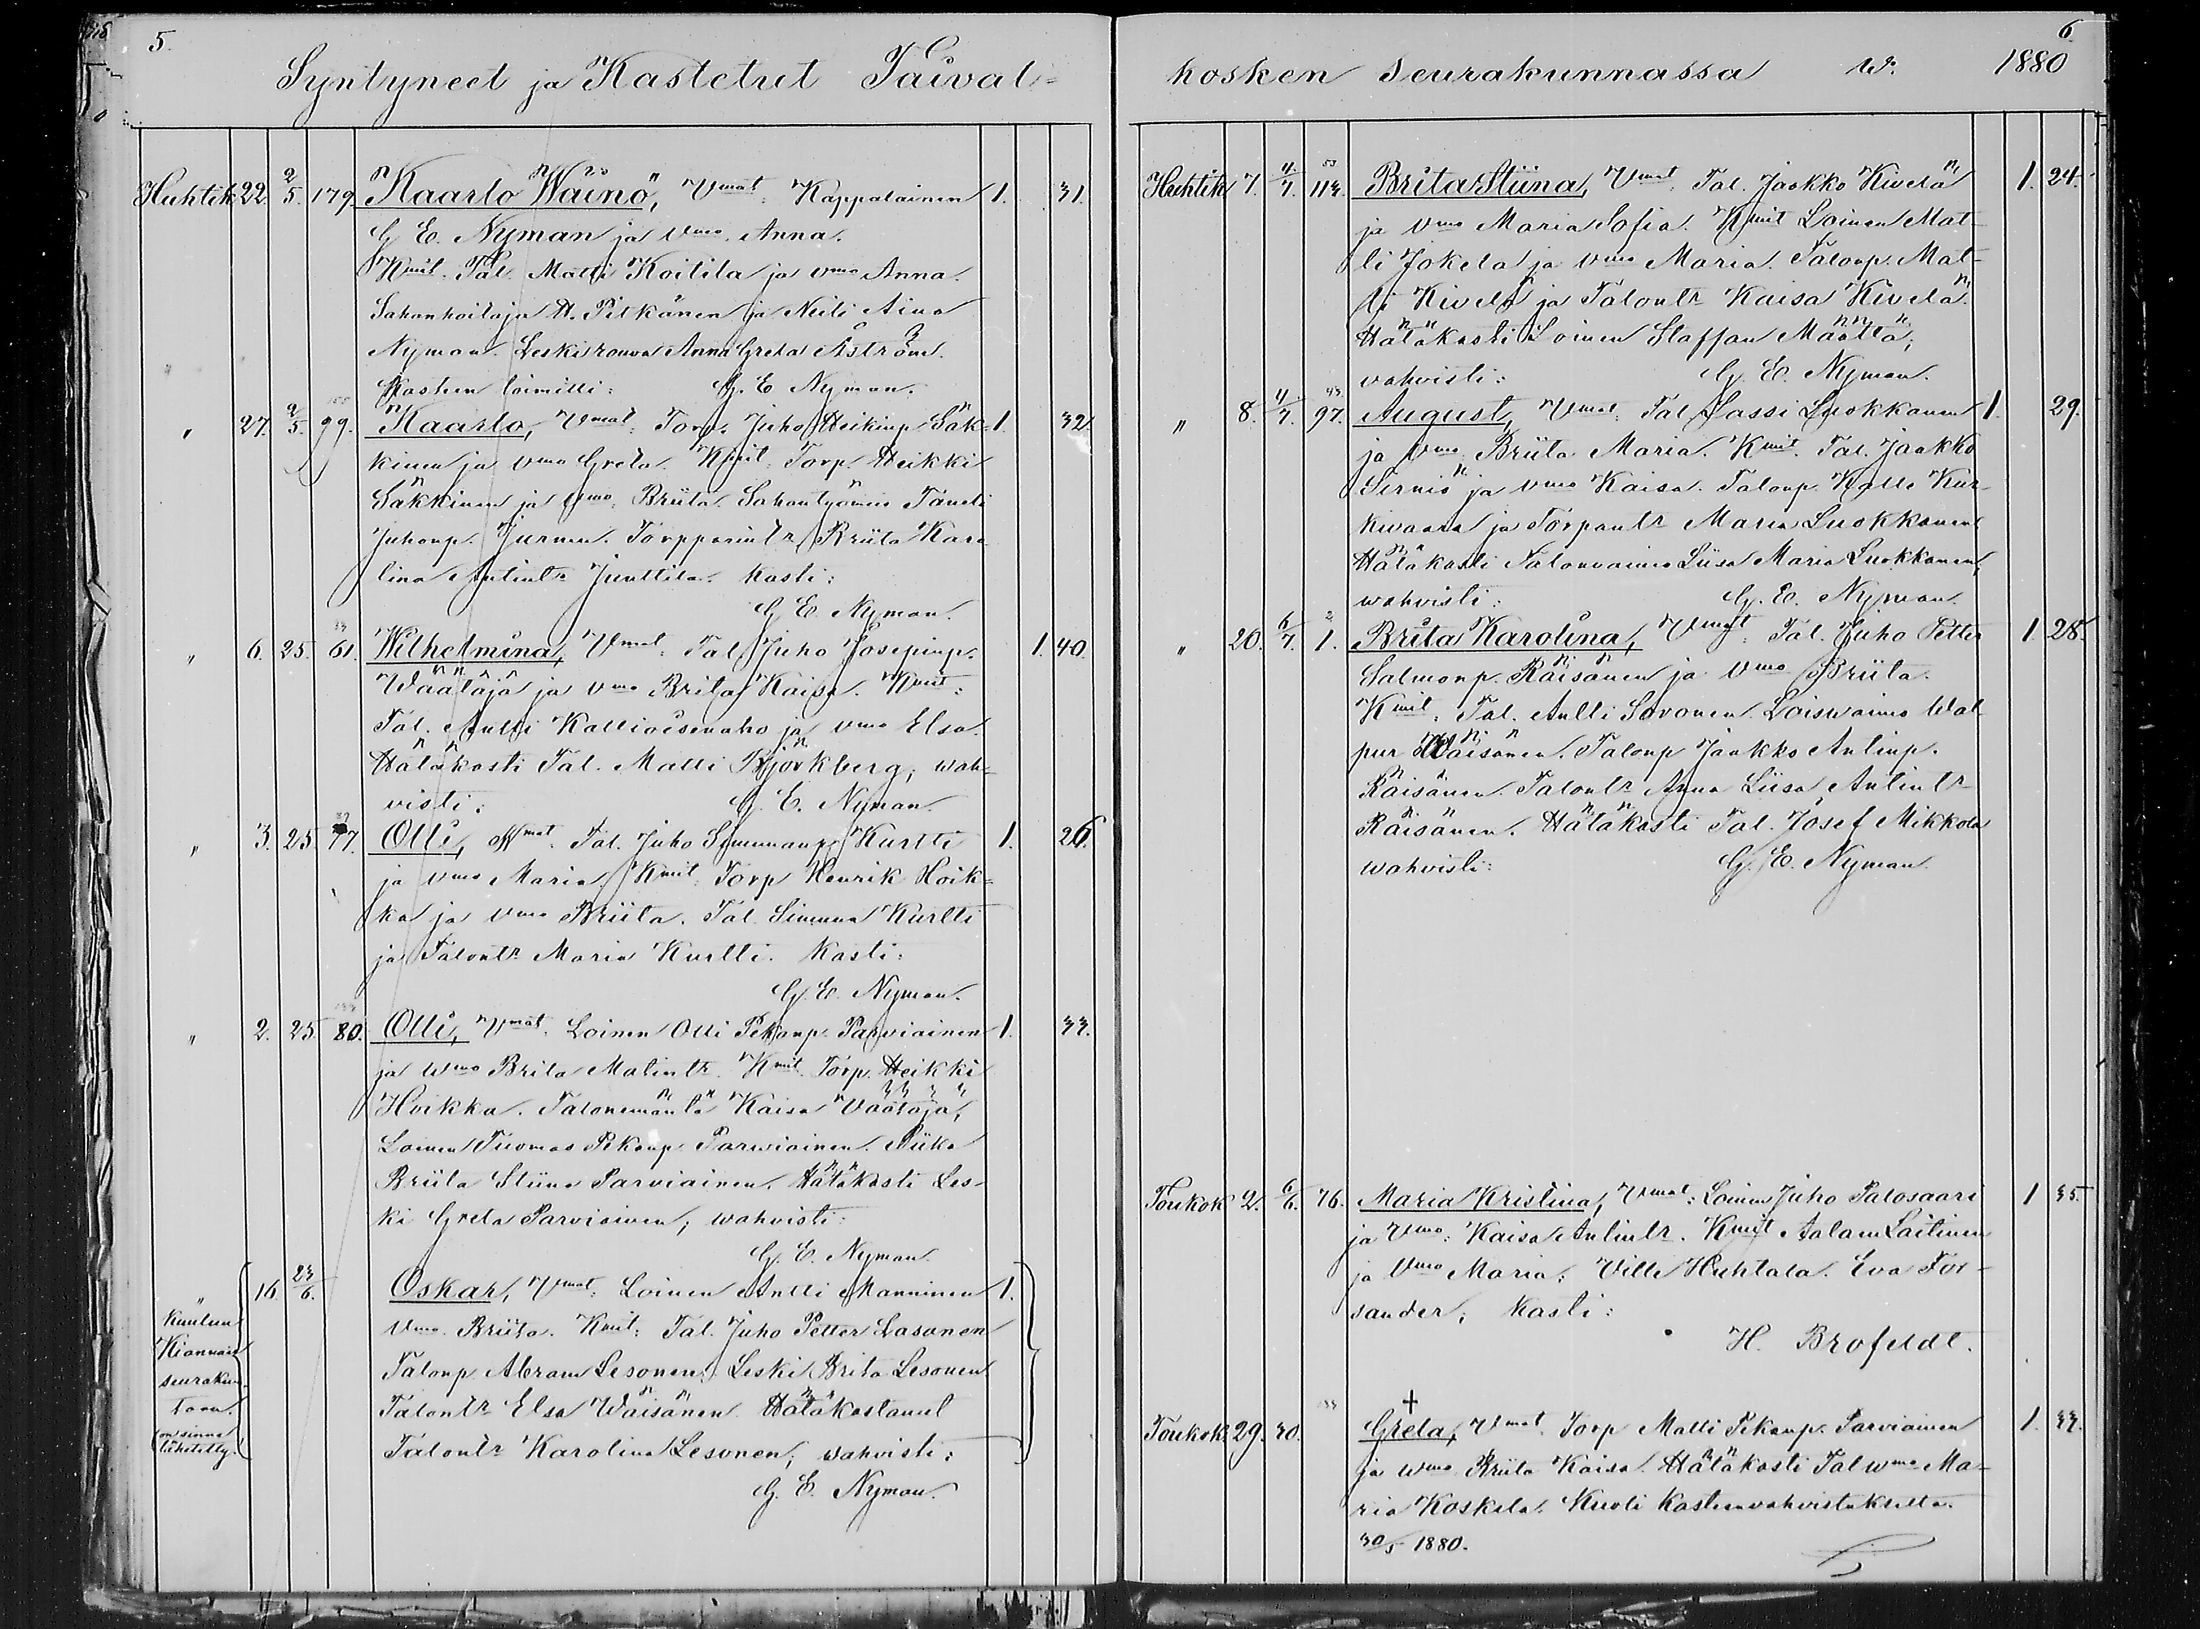 5.
Syntyneet ja Kastetut Taival-
Huhtik. 22. 2/5. 179. Kaarlo Wäinö, Vmat: Kappalainen 1. 31.
G. E. Nyman ja Vmo Anna.
Kmit. Tal. Matti Koitila ja vmo Anna.
Sahanhoitaja A. Pitkänen ja Neiti Aina
Nyman. Leskirouva Anna Greta Åström.
Kasteen toimitti: G. E. Nyman.
" 27. 2/5. 99. Kaarlo, Vmat: Torp. Juho Heikinp. Säk- 1. 32.
kinen ja vmo Greta. Kmit: Torp. Heikki
Säkkinen ja Vmo. Briita. Sahantyömies Taneli
Juhonp. Jurmu. Torpparintr. Briita Karo-
lina Antintr. Junttila. Kasti:
G. E. Nyman.
" 6. 25. 61. Wilhelmina, Vmat. Tal. Juho Josepinp. 1. 40.
Wäätäjä ja vmo Brita Kaisa. Kmit:
Tal. Antti Kallioisenaho ja vmo Elsa.
Hätäkasti Tal. Matti Björkberg; wah-
visti: G. E. Nyman.
" 3. 25. 77. Olli, Vmat. Tal. Juho Simunanp. Kurtti 1. 26.
ja vmo Maria. Kmit: Torp Henrik Hoik-
ka ja vmo Briita. Tal. Simuna Kurtti
ja Talontr. Maria Kurtti. Kasti:
G. E. Nyman.
" 2. 25. 80. Olli, Vmat. Loinen Olli Pekanp. Parviainen 1. 33.
ja wmo Brita Matintr. Kmit. Torp. Heikki
Hoikka. Talonemäntä Kaisa Väätäjä,
Loinen Tuomas Pekanp. Parwiainen. Piika
Briita Stiina Parviainen. Hätäkasti Les-
ki Greta Parviainen; wahvisti:
G. E. Nyman.
" 16. 23/6. Oskar, Vmat: Loinen Antti Manninen 1.
Vmo. Briita. Kmit: Tal. Juho Petter Lasonen
Talonp. Abram Lesonen. Leski Brita Lesonen
Talontr. Elsa Wäisänen. Hätäkastanut
Talontr. Karolina Lesonen; wahvisti:
G. E. Nyman.
Kuuluu
Kiannan
seurakun-
taan.
on sinne
lähetetty.
6.
kosken Seurakunnassa w. 1880
Huhtik. 7. 4/7. 113. Brita Stiina, Vmat. Tal. Jaakko Kivelä 1. 24.
ja vmo Maria Sofia. Kmit Loinen Mat-
ti Jokela ja vmo Maria. Talonp. Mat-
ti Kivelä ja Talontr. Kaisa Kivelä.
Hätäkasti Loinen Staffan Määttä;
vahvisti: G. E. Nyman.
" 8. 4/7. 97. August, Vmat. Tal. Lassi Luokkanen 1. 29.
ja vmo. Briita Maria. Kmit. Tal. Jaakko
Sirniö ja vmo Kaisa. Talonp. Kalle Kur-
kivaara ja Torpantr. Maria Luokkanen
Hätäkasti Talonvaimo Liisa Maria Luokkanen,
wahvisti: G. E. Nyman.
" 20. 6/7. 1. Brita Karolina, Vmat: Tal. Juho Petter 1. 28.
Salmonp. Räisänen ja vmo Briita.
Kmit. Tal. Antti Sovonen. Loiswaimo Wal-
pur Wäisänen. Talonp. Jaakko Antinp.
Räisänen. Talontr. Anna Liisa Antintr.
Räisänen. Hätäkasti Tal. Josef Mikkola
wahvisti: G. E. Nyman.
Toukok. 2. 6/6. 76. Maria Kristina, Vmat: Loinen Juho Palosaari 1 35.
ja Vmo: Kaisa Antintr. Kmit Aatam Laitinen
ja Vmo Maria; Ville Huhtala. Eva For-
sander; Kasti:
H. Brofeldt.
+
Toukok. 29. 30. Greta, Vmat. Torp Matti Pekanp. Parviainen 1. 33.
ja wmo Briita Kaisa. Hätäkasti Tal wmo Ma-
ria Koskela. Kuoli kasteenvahvistuksetta.
30/5 1880.